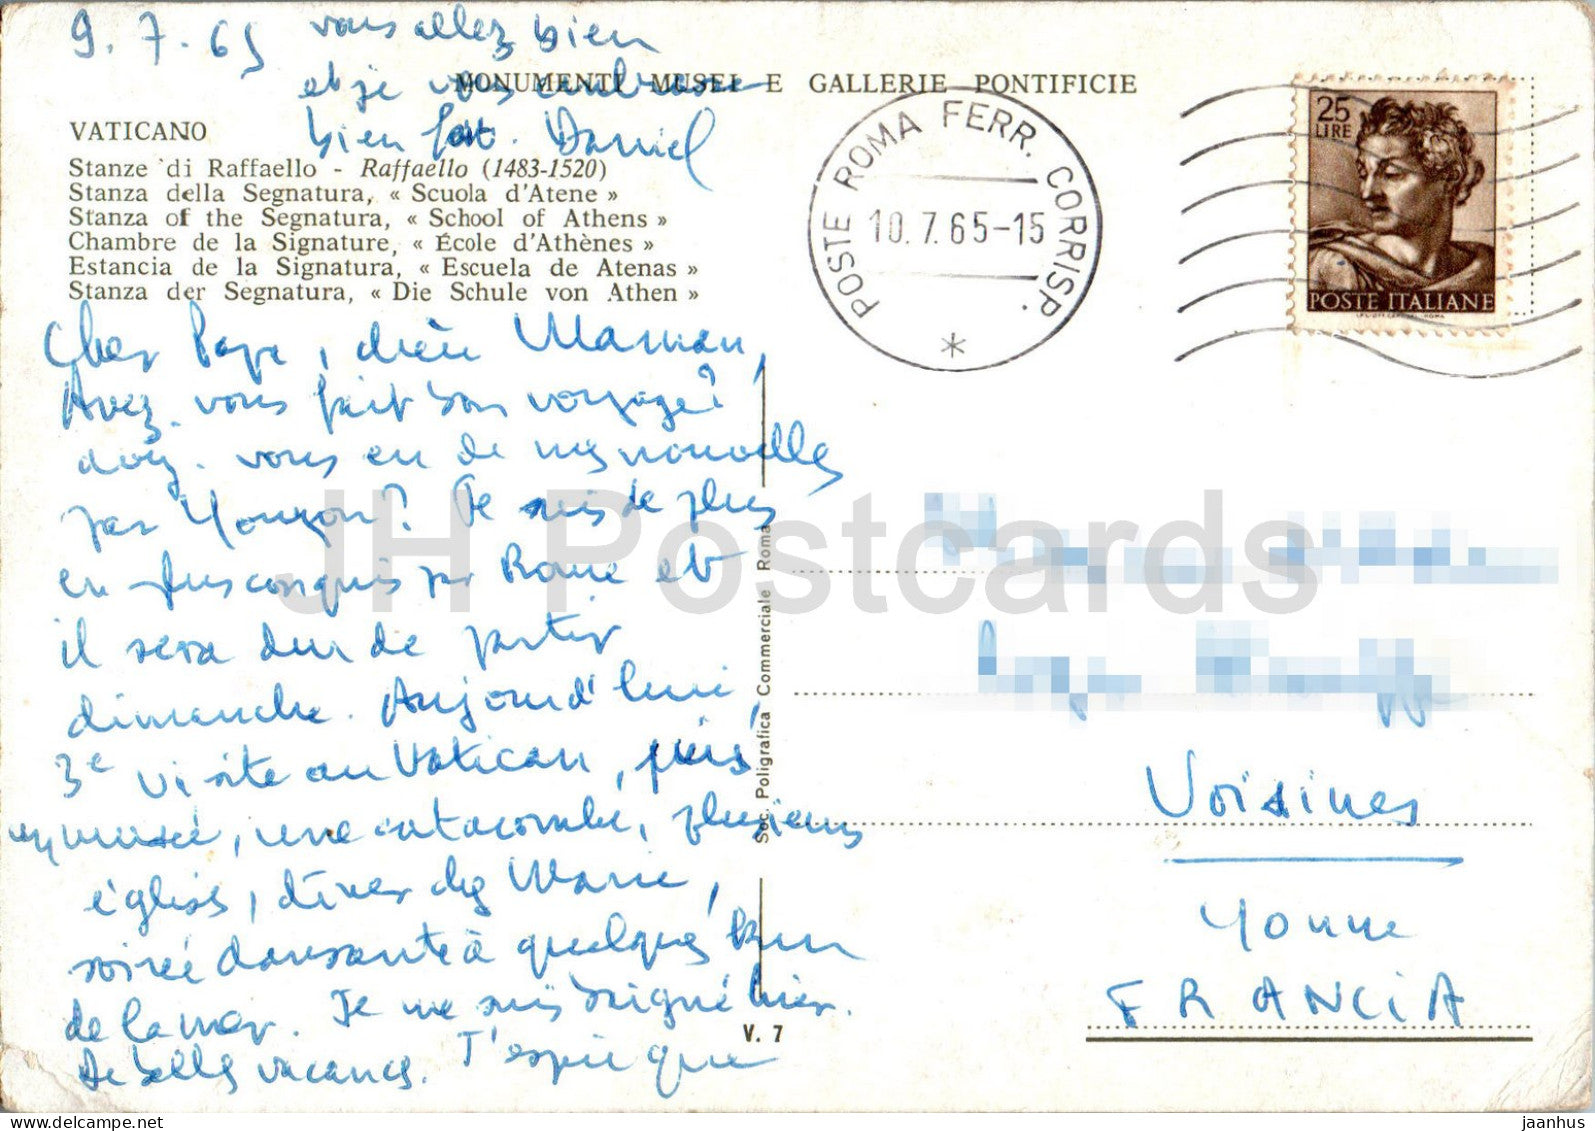 9.7.65
MONUMENTI MUSEI E GALLERIE PONTIFICIE
VATICANO
Stanze di Raffaello - Raffaello (1483-1520)
Stanza della Segnatura, « Scuola d'Atene »
Stanza of the Segnatura, « School of Athens »
Chambre de la Signature, « École d'Athènes »
Estancia de la Signatura, « Escuela de Atenas »
Stanza der Segnatura, « Die Schule von Athen »
Cher Papa, chère Maman,
Avez-vous fait bon voyage?
avez-vous eu de mes nouvelles
par ? Je suis de plus
en plus conquis par Rome et
il sera dur de partir
dimanche. Aujourd'hui
3e visite au Vatican, puis
un musée, une catacombe, plusieurs
églises, dîner chez Marie,
soirée dansante à quelques km
de la mer. Je me suis baigné hier.
de belles vacances. J'espère que
vous allez bien
et je vous embrasse
bien fort. Daniel
Soc. Poligrafica Commerciale Roma
V. 7
POSTE ROMA FERR. CORRISP.
10.7.65-15
*
25
LIRE
POSTE ITALIANE
Voisines
Yonne
FRANCIA
JH Postcards
www.delcampe.net
jaanhus